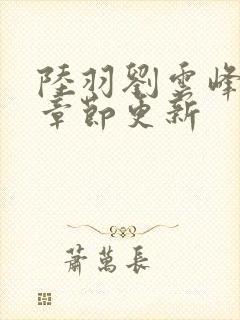 陸羽劉雲峰
章節更新
蕭萬長